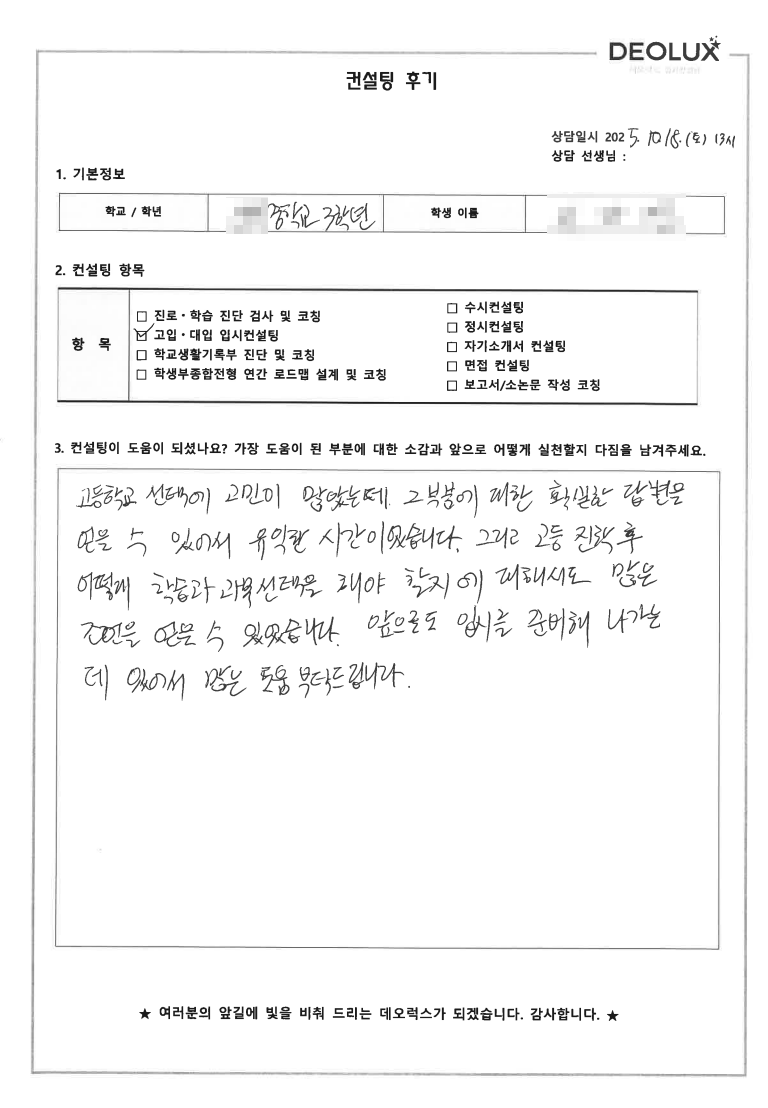 DEOLUX
컨설팅 후기
상담일시 2025. 10. 18. (토) 13시
상담 선생님 :
1. 기본정보
학교 / 학년 중학교 3학년 학생 이름
2. 컨설팅 항목
항 목
□ 진로・학습 진단 검사 및 코칭
☑ 고입・대입 입시컨설팅
□ 학교생활기록부 진단 및 코칭
□ 학생부종합전형 연간 로드맵 설계 및 코칭
□ 수시컨설팅
□ 정시컨설팅
□ 자기소개서 컨설팅
□ 면접 컨설팅
□ 보고서/소논문 작성 코칭
3. 컨설팅이 도움이 되셨나요? 가장 도움이 된 부분에 대한 소감과 앞으로 어떻게 실천할지 다짐을 남겨주세요.
고등학교 선택에 고민이 많았는데 그 부분에 대한 확실한 답변을
얻을 수 있어서 유익한 시간이었습니다. 그리고 고등 진학 후
어떻게 학습과 과목선택을 해야 할지에 대해서도 많은
조언을 얻을 수 있었습니다. 앞으로도 입시를 준비해 나가는
데 있어서 많은 도움 부탁드립니다.
★ 여러분의 앞길에 빛을 비춰 드리는 데오럭스가 되겠습니다. 감사합니다. ★